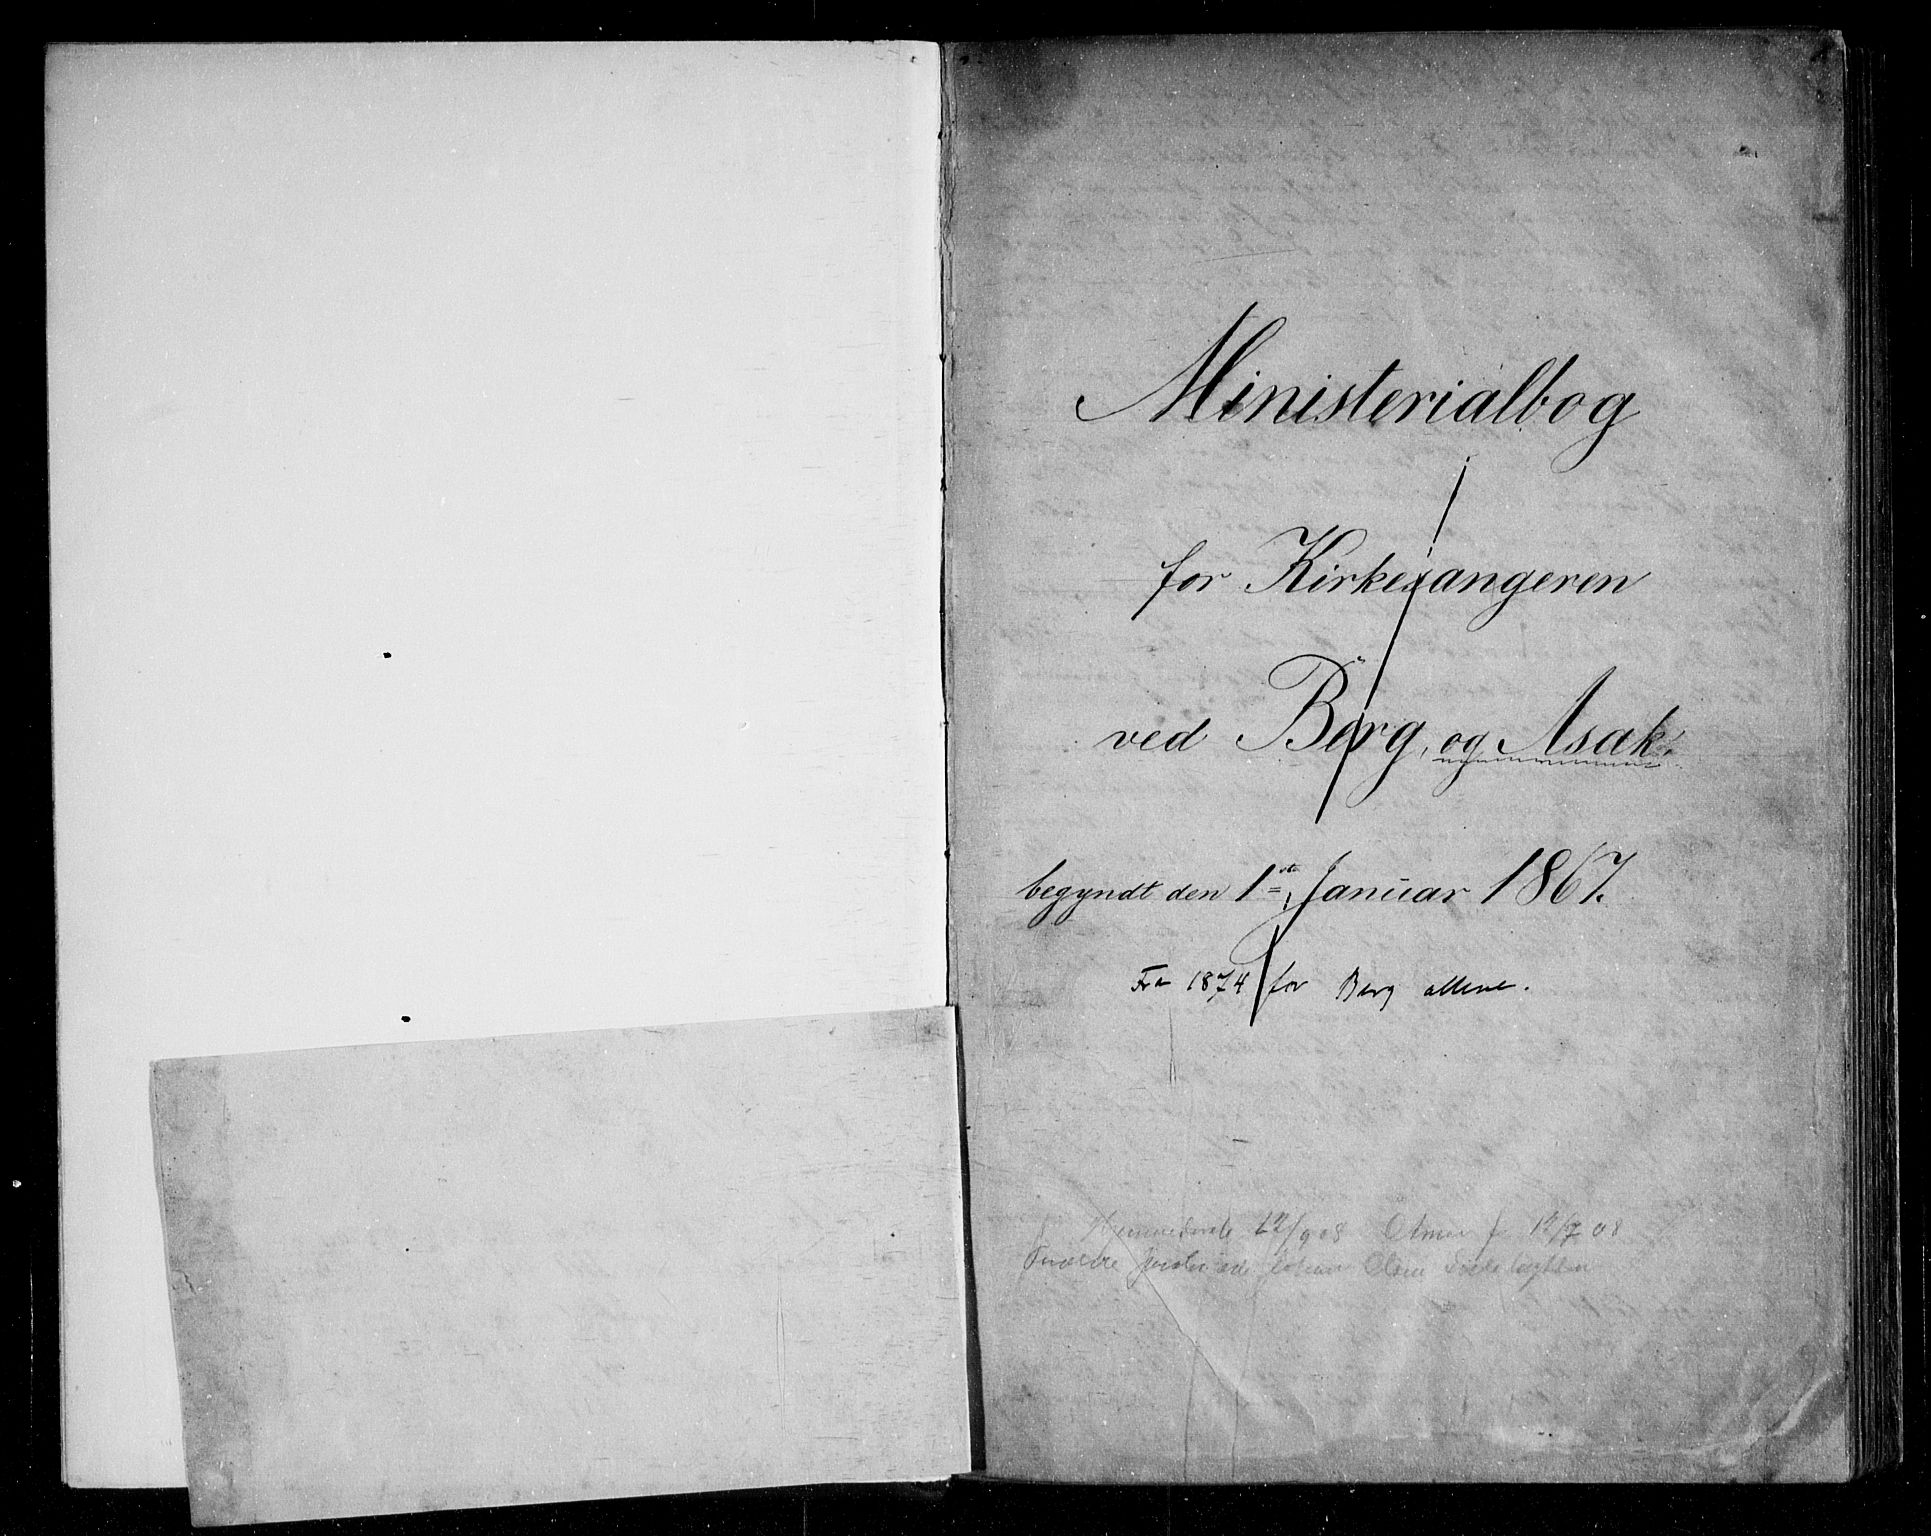 Ministerialbog
for Kirkesangeren
ved Berg, og Asak.
begyndt den 1ste Januar 1867.
Fra 1874 for Berg allene.
Hjemmedøbte 12/9 08 12/7 08
Johan